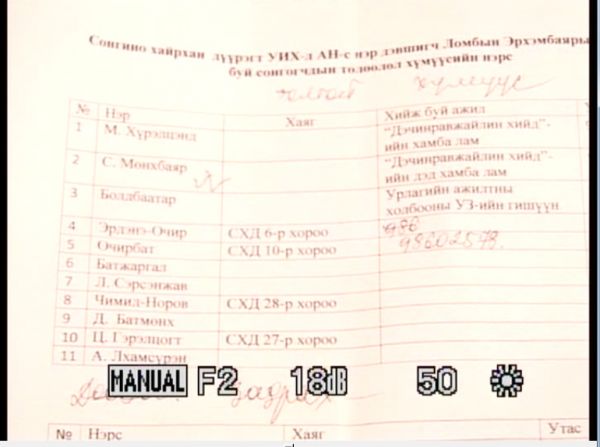 Сонгино хайрхан дүүрэгт УИХ-д АН-с нэр дэвшигч Ломбын Эрхэмбаяры
буй сонгогчдын төлөөлөл хүмүүсийн нэрс
хүмүүс
№ Нэр Хаяг Хийж буй ажил
1 М. Хүрэлцэнд "Дэчинравжайлин хийд"-
ийн хамба лам
2 С. Мөнхбаяр "Дэчинравжайлин хийд"-
ийн дэд хамба лам
3 Болдбаатар Урлагийн ажилтны
холбооны УЗ-ийн гишүүн
4 Эрдэнэ-Очир СХД 6-р хороо 986
5 Очирбат СХД 10-р хороо 98602578.
6 Батжаргал
7 Л. Сэрсэнжав
8 Чимид-Норов СХД 28-р хороо
9 Д. Батмөнх
10 Ц. Гэрэлцогт СХД 27-р хороо
11 А. Лхамсүрэн
MANUAL F2 18dB 50
№ Нэрс Хаяг Утас